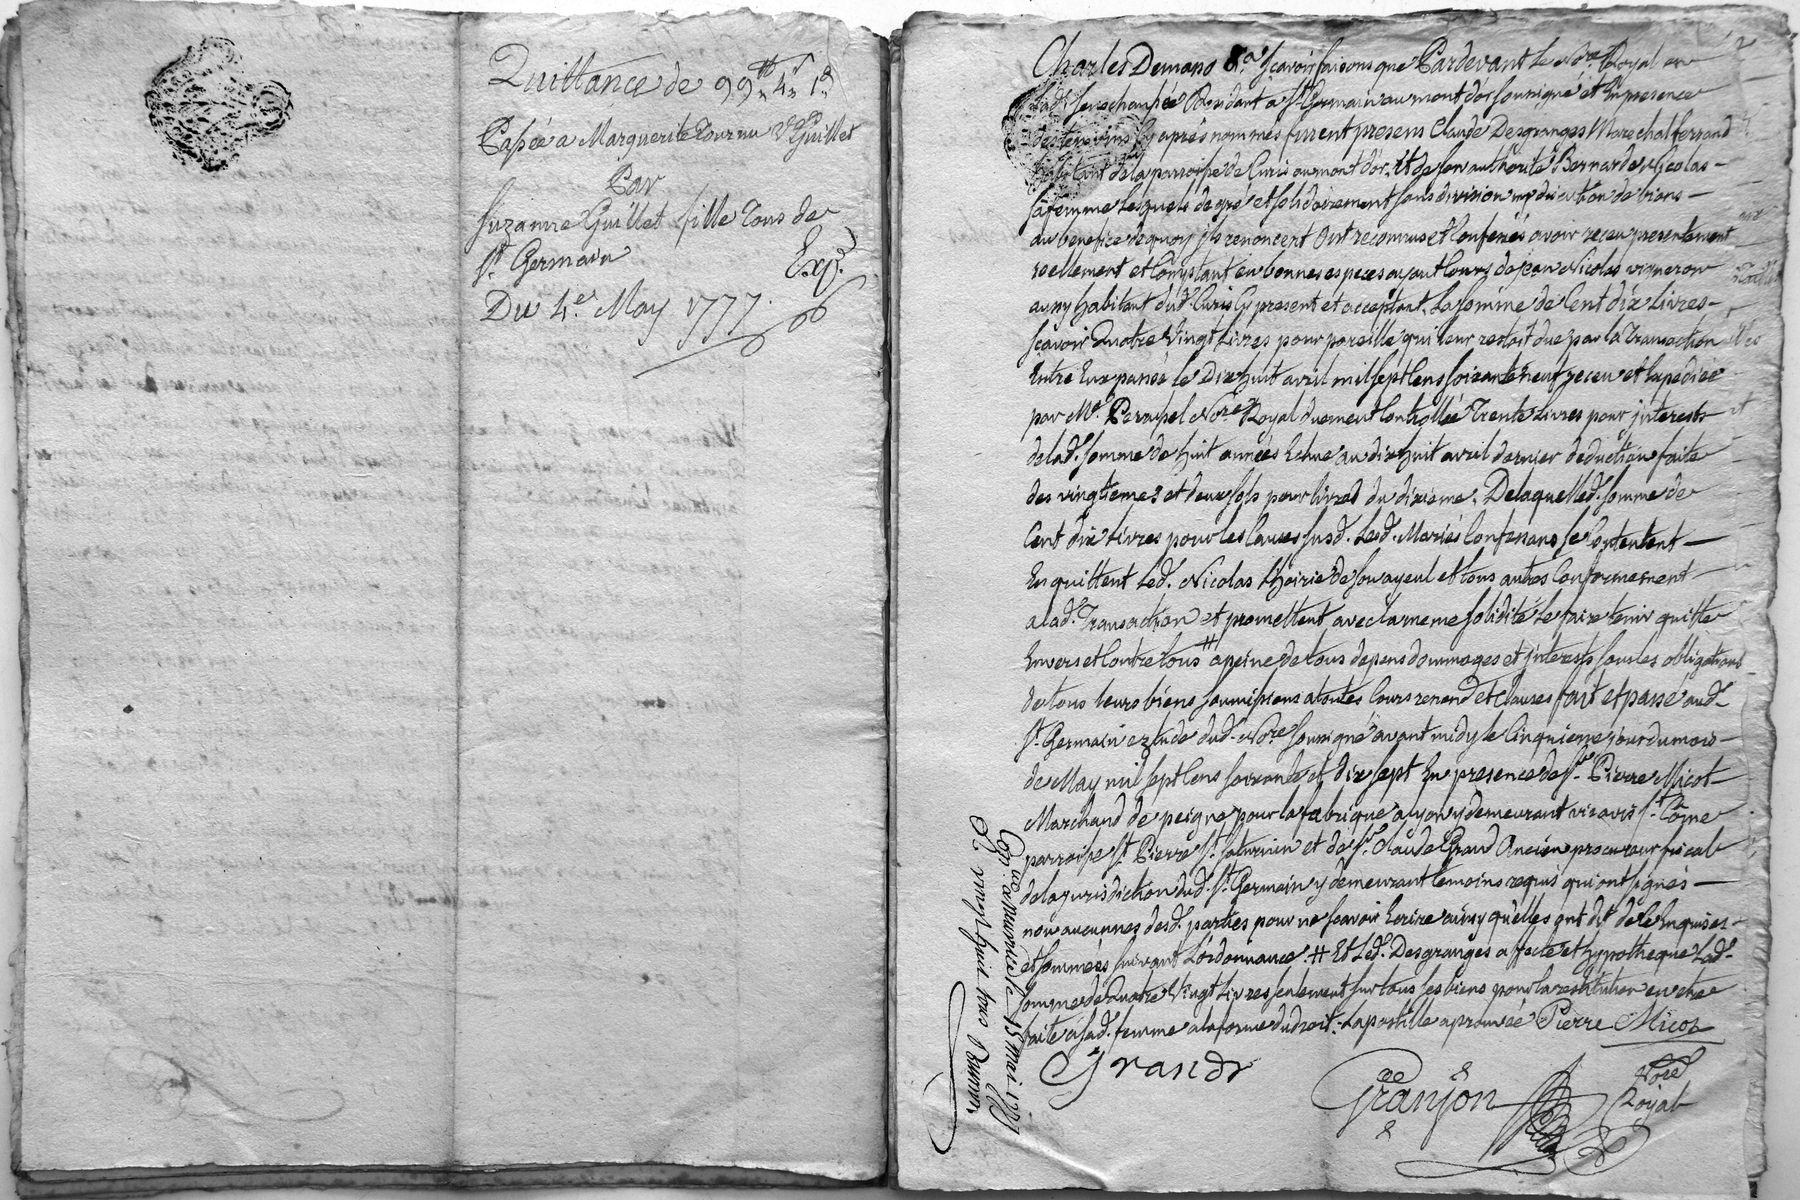 Quittance de 99lt 4s 1d
Passée a Marguerite Tournu Vve Guillet
Par
Suzanne Guillet fille Tous de
St. Germain
Exp.
Du 4.e May 1777.
Charles Demano &a. Sçavoir faisons que Pardevant Le Nore Royal en
lad. Senechaussée Residant a St Germain au mont dor soussigné et En presence
des temoins Cy aprés nommés furent presens Claude Desgranges Marechal ferrand
habitant de la parroisse de Curis au mont d'or, Et de son authorité Bernarde Nicolas
sa femme Lesquels de gré et solidairement sans division ny discution de biens
au benefice dequoy ils renoncent Ont reconnus et Confessés avoir reçeu presentement
reellement et Comptant en bonnes especes ayant Cours de Jean Nicolas vigneron
habitant dud. Curis Cy present et acceptant La somme de Cent dix Livres
sçavoir Quatre Vingt Livres pour pareille qui leur restoit due par la Transaction
Entre Eux passée le Dix huit avril mil sept Cens soixante Neuf reçeu et Expediée
par Me. Nore Royal duement Controllée Trente Livres pour jnterests
de lad. somme de huit années Echue au dix huit avril dernier deduction faite
des vingtiemes et deux sols pour livres du dixieme. De laquelle d. somme de
Cent dix Livres pour les Causes susd. Lesd. Mariés Confessans se Contentent
En quittent Led. Nicolas L'hoirie de son ayeul et tous autres Conformement
a lad. Transaction et promettent avec la meme solidité Le faire tenir quitte
Envers et Contre tous # a peine de tous depens dommages et jnterests sous les obligations
de tous leurs biens soumissions a toutes Cours renond. et Clauses fait et passé aud.
St. Germain Etude dud. Nore soussigné avant midy le Cinquieme jour du mois
de May mil sept Cens soixante et dix sept En presence de Sr. Pierre Micol
Marchand de peigne pour la fabrique a Lyon y demeurant vis avis St. Côme
parroisse St. Pierre St. Saturnin et de Sr. Claude Grand Ancien procureur fiscal
de la jurisdiction dud. St. Germain y demeurant temoins requis qui ont signés
non aucunnes desd. parties pour ne sçavoir Ecrire ainsy qu'elles ont dit de ce Enquises
et sommées suivant L'ordonnance. # Et Led. Desgranges affecte et hypotheque Lad.
somme de Quatre Vingt Livres seulement sur tous ses biens pour la restitution en etre
faite a sad. femme a la forme du droit. Lapostille aprouvée Pierre Micol
Grand
Granjon
Nore
Royal
18 mai 1777
vingt huit sous